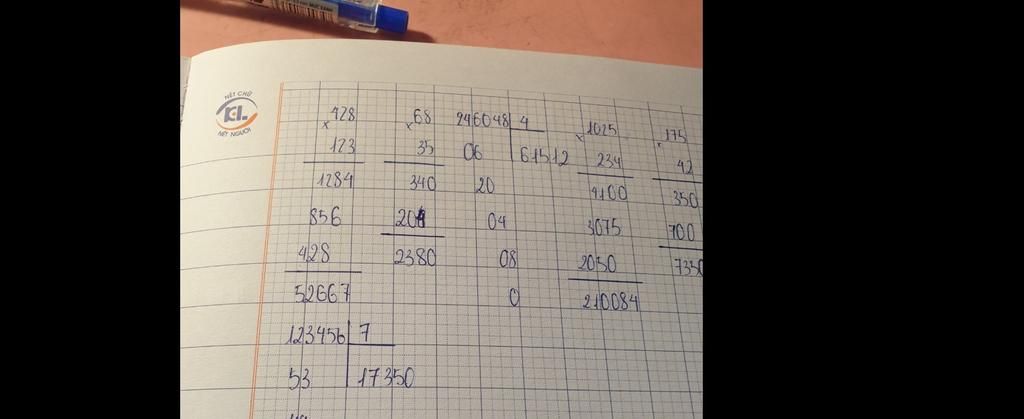 NÉT CHỮ
KL
NẾT NGƯỜI
428
x
123
1284
856
428
52667
68
x
35
340
204
2380
246048 4
06 61512
20
04
08
0
1025
x
234
4100
3075
2050
210084
175
x
42
350
700
7350
123456 7
53 17350